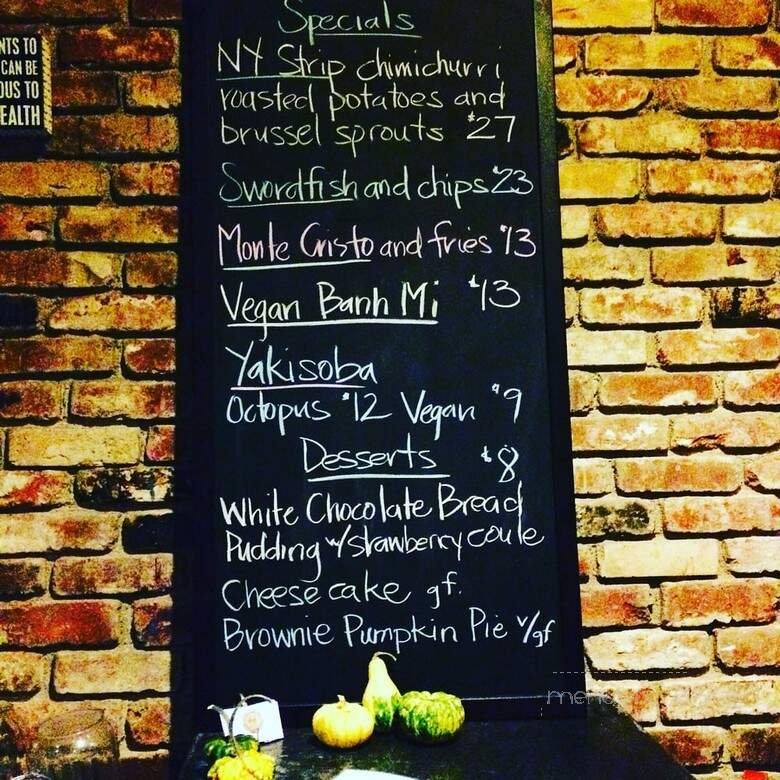 NTS TO
CAN BE
OUS TO
EALTH
Specials
NY Strip chimichurri
roasted potatoes and
brussel sprouts $27
Swordfish and chips $23
Monte Cristo and fries $13
Vegan Banh Mi $13
Yakisoba
Octopus $12 Vegan $9
Desserts $8
White Chocolate Bread
Pudding w/strawberry coule
Cheese cake gf.
Brownie Pumpkin Pie v/gf
menu